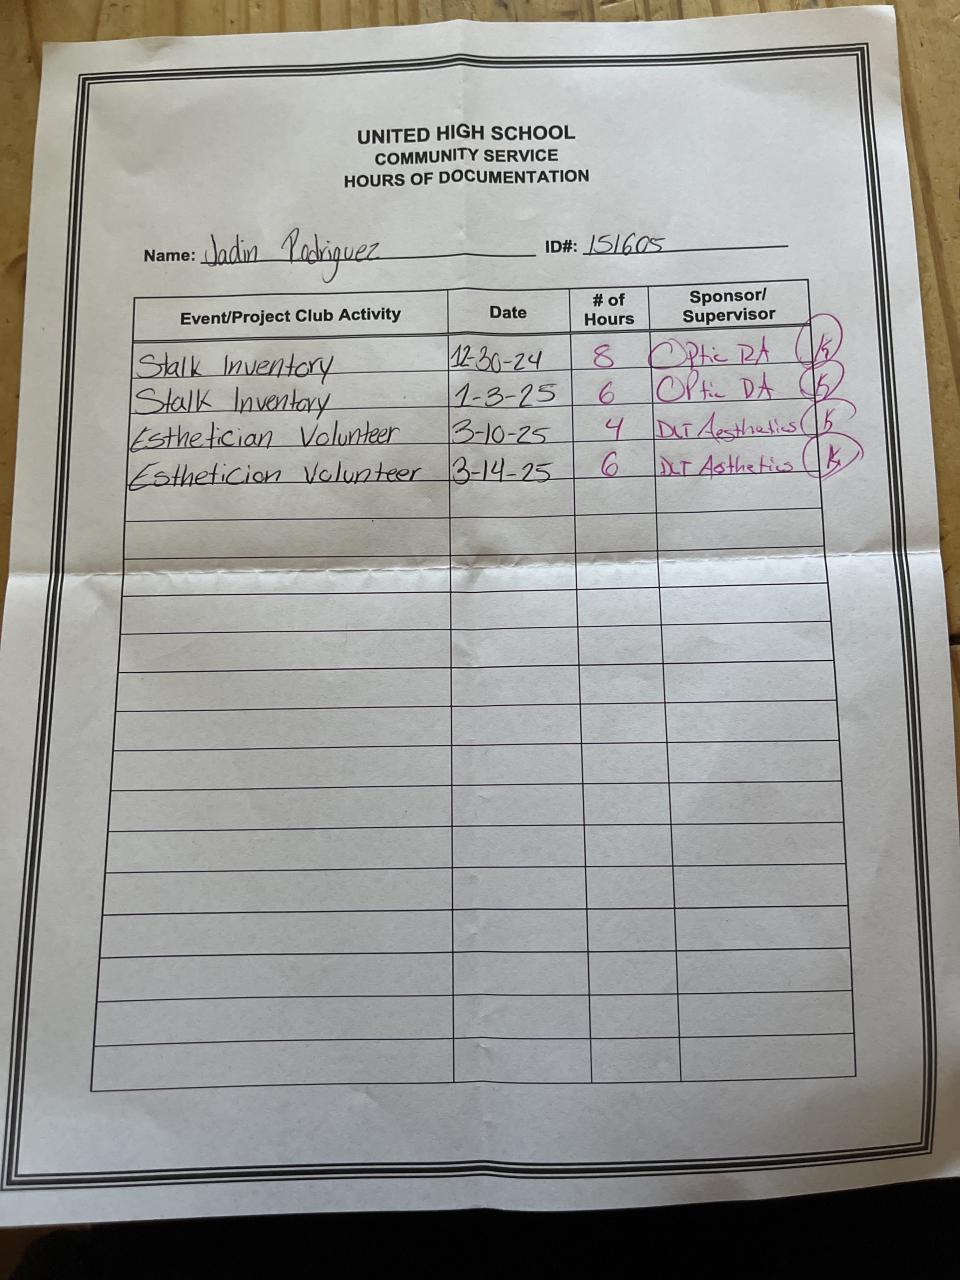 UNITED HIGH SCHOOL
COMMUNITY SERVICE
HOURS OF DOCUMENTATION
Name: Jadin Rodriguez ID#: 151605
Event/Project Club Activity Date # of Hours Sponsor/Supervisor
Stalk Inventory 12-30-24 8 Optic RA
Stalk Inventory 1-3-25 6 Optic DA
Esthetician Volunteer 3-10-25 4 DLT Aesthetics
Estheticion Volunteer 3-14-25 6 DLT Asthetics